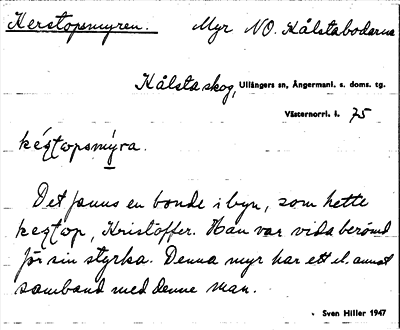 Kerstopsmyren. Myr NO. Kålstabodarna
Kålsta skog, Ullångers sn, Ångermanl. s. doms. tg.
Västernorrl. l. 75
Det fanns en bonde i byn, som hette
, Kristoffer. Han var vida berömd
för sin styrka. Denna myr har ett el. annat
samband med denne man.
Sven Hiller 1947